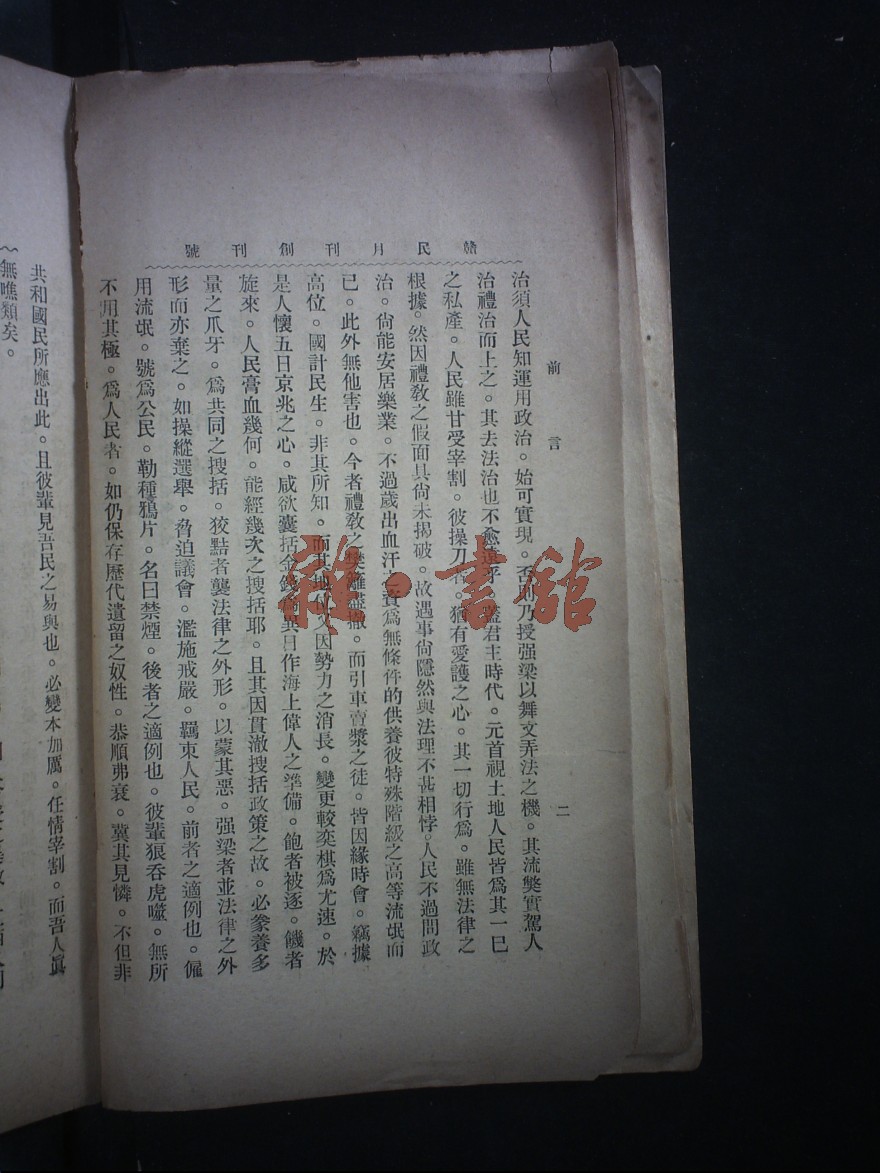 贛民月刊創刊號
前言
二
治須人民知運用政治。始可實現。否則乃授强梁以舞文弄法之機。其流弊實駕人
治禮治而上之。其去法治也不愈遠乎。蓋君主時代。元首視土地人民皆爲其一已
之私產。人民雖甘受宰割。彼操刀者。猶有愛護之心。其一切行爲。雖無法律之
根據。然因禮敎之假面具尙未揭破。故遇事尙隱然與法理不甚相悖。人民不過問政
治。尙能安居樂業。不過歲出血汗之資爲無條件的供養彼特殊階級之高等流氓而
已。此外無他害也。今者禮敎之樊籬盡撤。而引車賣漿之徒。皆因緣時會。竊據
高位。國計民生。非其所知。而其地位又因勢力之消長。變更較奕棋爲尤速。於
是人懷五日京兆之心。咸欲囊括金錢爲異日作海上偉人之準備。飽者被逐。饑者
旋來。人民膏血幾何。能經幾次之搜括耶。且其因貫澈搜括政策之故。必豢養多
量之爪牙。爲共同之搜括。狡黠者襲法律之外形。以蒙其惡。强梁者並法律之外
形而亦棄之。如操縱選舉。脅迫議會。濫施戒嚴。羈束人民。前者之適例也。僱
用流氓。號爲公民。勒種鴉片。名曰禁煙。後者之適例也。彼輩狠呑虎噬。無所
不用其極。爲人民者。如仍保存歷代遺留之奴性。恭順弗衰。冀其見憐。不但非
共和國民所應出此。且彼輩見吾民之易與也。必變本加厲。任情宰割。而吾人眞
無噍類矣。
雜·書館